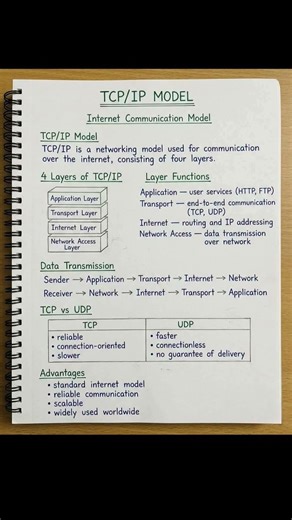 TCP/IP MODEL
Internet Communication Model
TCP/IP Model
TCP/IP is a networking model used for communication
over the internet, consisting of four layers.
4 Layers of TCP/IP
Application Layer
Transport Layer
Internet Layer
Network Access
Layer
Layer Functions
Application — user services (HTTP, FTP)
Transport — end-to-end communication
(TCP, UDP)
Internet — routing and IP addressing
Network Access — data transmission
over network
Data Transmission
Sender → Application → Transport → Internet → Network
Receiver → Network → Internet → Transport → Application
TCP vs UDP
TCP
• reliable
• connection-oriented
• slower
UDP
• faster
• connectionless
• no guarantee of delivery
Advantages
• standard internet model
• reliable communication
• scalable
• widely used worldwide